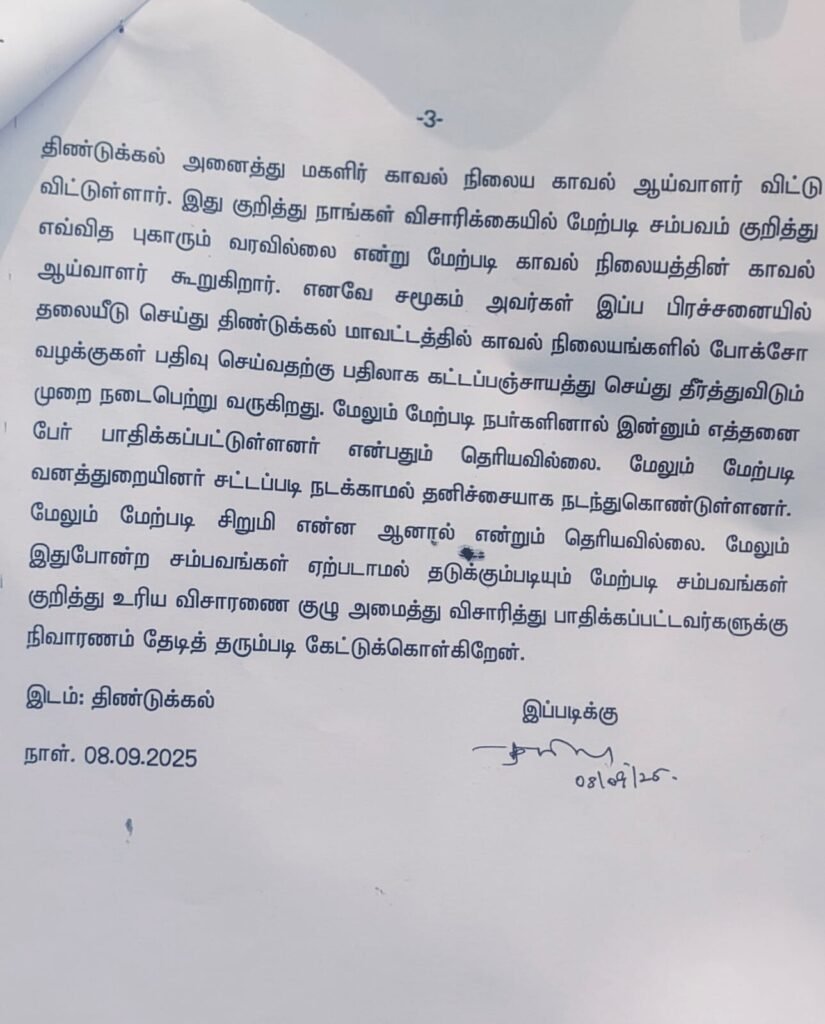 -3-
திண்டுக்கல் அனைத்து மகளிர் காவல் நிலைய காவல் ஆய்வாளர் விட்டு
விட்டுள்ளார். இது குறித்து நாங்கள் விசாரிக்கையில் மேற்படி சம்பவம் குறித்து
எவ்வித புகாரும் வரவில்லை என்று மேற்படி காவல் நிலையத்தின் காவல்
ஆய்வாளர் கூறுகிறார். எனவே சமூகம் அவர்கள் இப்ப பிரச்சனையில்
தலையீடு செய்து திண்டுக்கல் மாவட்டத்தில் காவல் நிலையங்களில் போக்சோ
வழக்குகள் பதிவு செய்வதற்கு பதிலாக கட்டப்பஞ்சாயத்து செய்து தீர்த்துவிடும்
முறை நடைபெற்று வருகிறது. மேலும் மேற்படி நபர்களினால் இன்னும் எத்தனை
பேர் பாதிக்கப்பட்டுள்ளனர் என்பதும் தெரியவில்லை. மேலும் மேற்படி
வனத்துறையினர் சட்டப்படி நடக்காமல் தனிச்சையாக நடந்துகொண்டுள்ளனர்.
மேலும் மேற்படி சிறுமி என்ன ஆனால் என்றும் தெரியவில்லை. மேலும்
இதுபோன்ற சம்பவங்கள் ஏற்படாமல் தடுக்கும்படியும் மேற்படி சம்பவங்கள்
குறித்து உரிய விசாரணை குழு அமைத்து விசாரித்து பாதிக்கப்பட்டவர்களுக்கு
நிவாரணம் தேடித் தரும்படி கேட்டுக்கொள்கிறேன்.
இடம்: திண்டுக்கல்
இப்படிக்கு
நாள். 08.09.2025
08/09/25.